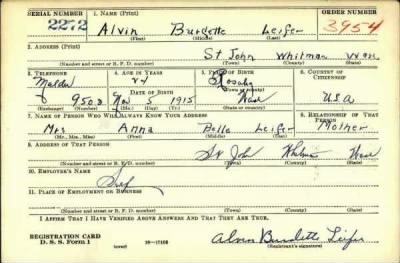 SERIAL NUMBER 1. NAME (Print) ORDER NUMBER
2272 Alvin Burdette Leifer 3954
(First) (Middle) (Last)
2. ADDRESS (Print)
St John Whitman Wn
(Number and street or R. F. D. number) (Town) (County) (State)
3. TELEPHONE 4. AGE IN YEARS 5. PLACE OF BIRTH 6. COUNTRY OF CITIZENSHIP
24
DATE OF BIRTH
950 Nov 5 1915 Wash U.S.A
(Exchange) (Number) (Mo.) (Day) (Yr.) (State or country)
7. NAME OF PERSON WHO WILL ALWAYS KNOW YOUR ADDRESS 8. RELATIONSHIP OF THAT PERSON
Mrs Anna Belle Leifer Mother
(Mr., Mrs., Miss) (First) (Middle) (Last)
9. ADDRESS OF THAT PERSON
St John Whitman Wash
(Number and street or R. F. D. number) (Town) (County) (State)
10. EMPLOYER'S NAME
Self
11. PLACE OF EMPLOYMENT OR BUSINESS
(Number and street or R. F. D. number) (Town) (County) (State)
I AFFIRM THAT I HAVE VERIFIED ABOVE ANSWERS AND THAT THEY ARE TRUE.
REGISTRATION CARD
D. S. S. Form 1 (over) 16—17105 Alvin Burdette Leifer
(Registrant's signature)